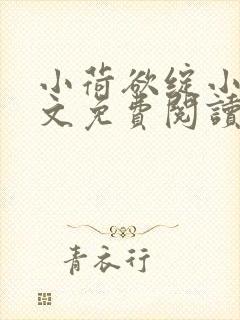 小荷欲綻小
文免費閱讀
青衣行